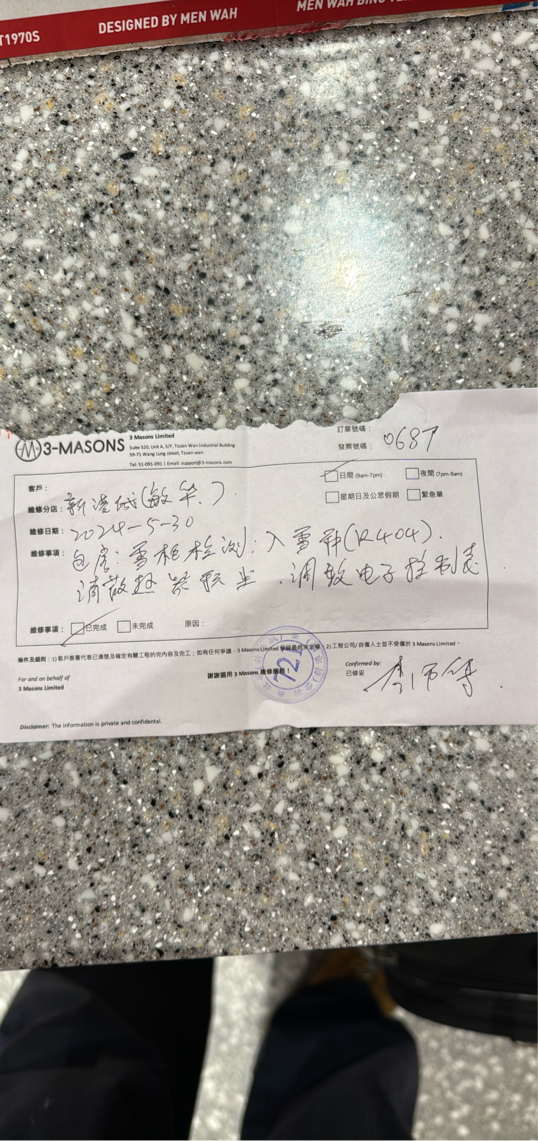 T1970S
DESIGNED BY MEN WAH
MEN WAH BING
3-MASONS
3 Masons Limited
Suite 520, Unit A, 5/F, Tsuen Wan Industrial Building
59-71 Wang Lung street, Tsuen wan
Tel: 51-091-091 | Email: support@3-masons.com
訂單號碼:
發票號碼: 0687
客戶:
日間 (9am-7pm) 夜間 (7pm-9am)
星期日及公眾假期 緊急單
維修分店: 新港城(敏华)
維修日期: 2024-5-30
維修事項: 包房: 雪柜检测: 入雪种(R404).
清散热器积尘 .调较电子控制表
維修事項: 已完成 未完成 原因:
條件及細則: 1)客戶簽署代表已清楚及確定有關工程的完內容及完工
3 Masons Limited
2)工程公司/自僱人士並不受僱於 3 Masons Limited。
For and on behalf of
3 Masons Limited
謝謝選用 3 Masons 維修服務!
72
Confirmed by:
已修妥
Disclaimer: The information is private and confidential.